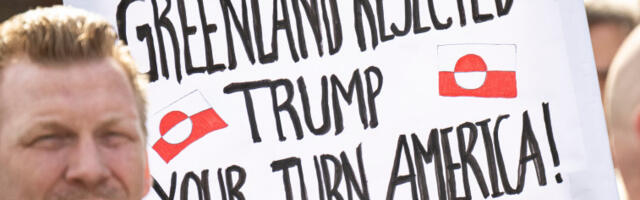 GREENLAND REJECTED
TRUMP
YOUR TURN AMERICA!